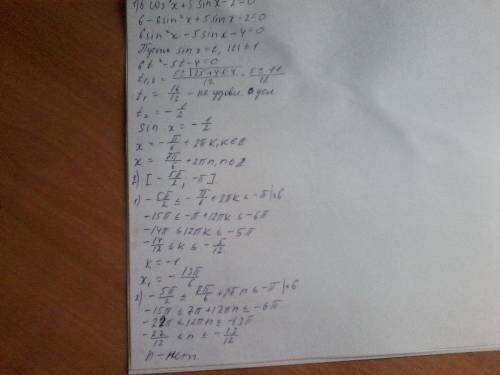 1) 6 cos²x + 5 sin x - 2 = 0
6 - 6 sin²x + 5 sin x - 2 = 0
6 sin²x - 5 sin x - 4 = 0
Пусть sin x = t, |t| ≤ 1
6t² - 5t - 4 = 0
t₁ = 16/12 - не удовл. усл
t₂ = -1/2
sin x = -1/2
x = -π/6 + 2πk, k ∈ Z
x = 7π/6 + 2πn, n ∈ Z
2) [-5π/2; -π]
1) -5π/2 ≤ -π/6 + 2πk ≤ -π |·6
-15π ≤ -π + 12πk ≤ -6π
-14π ≤ 12πk ≤ -5π
-14/12 ≤ k ≤ -5/12
k = -1
x₁ = -13π/6
2) -5π/2 ≤ 7π/6 + 2πn ≤ -π |·6
-15π ≤ 7π + 12πn ≤ -6π
-22π ≤ 12πn ≤ -13π
-22/12 ≤ n ≤ -13/12
n - нет